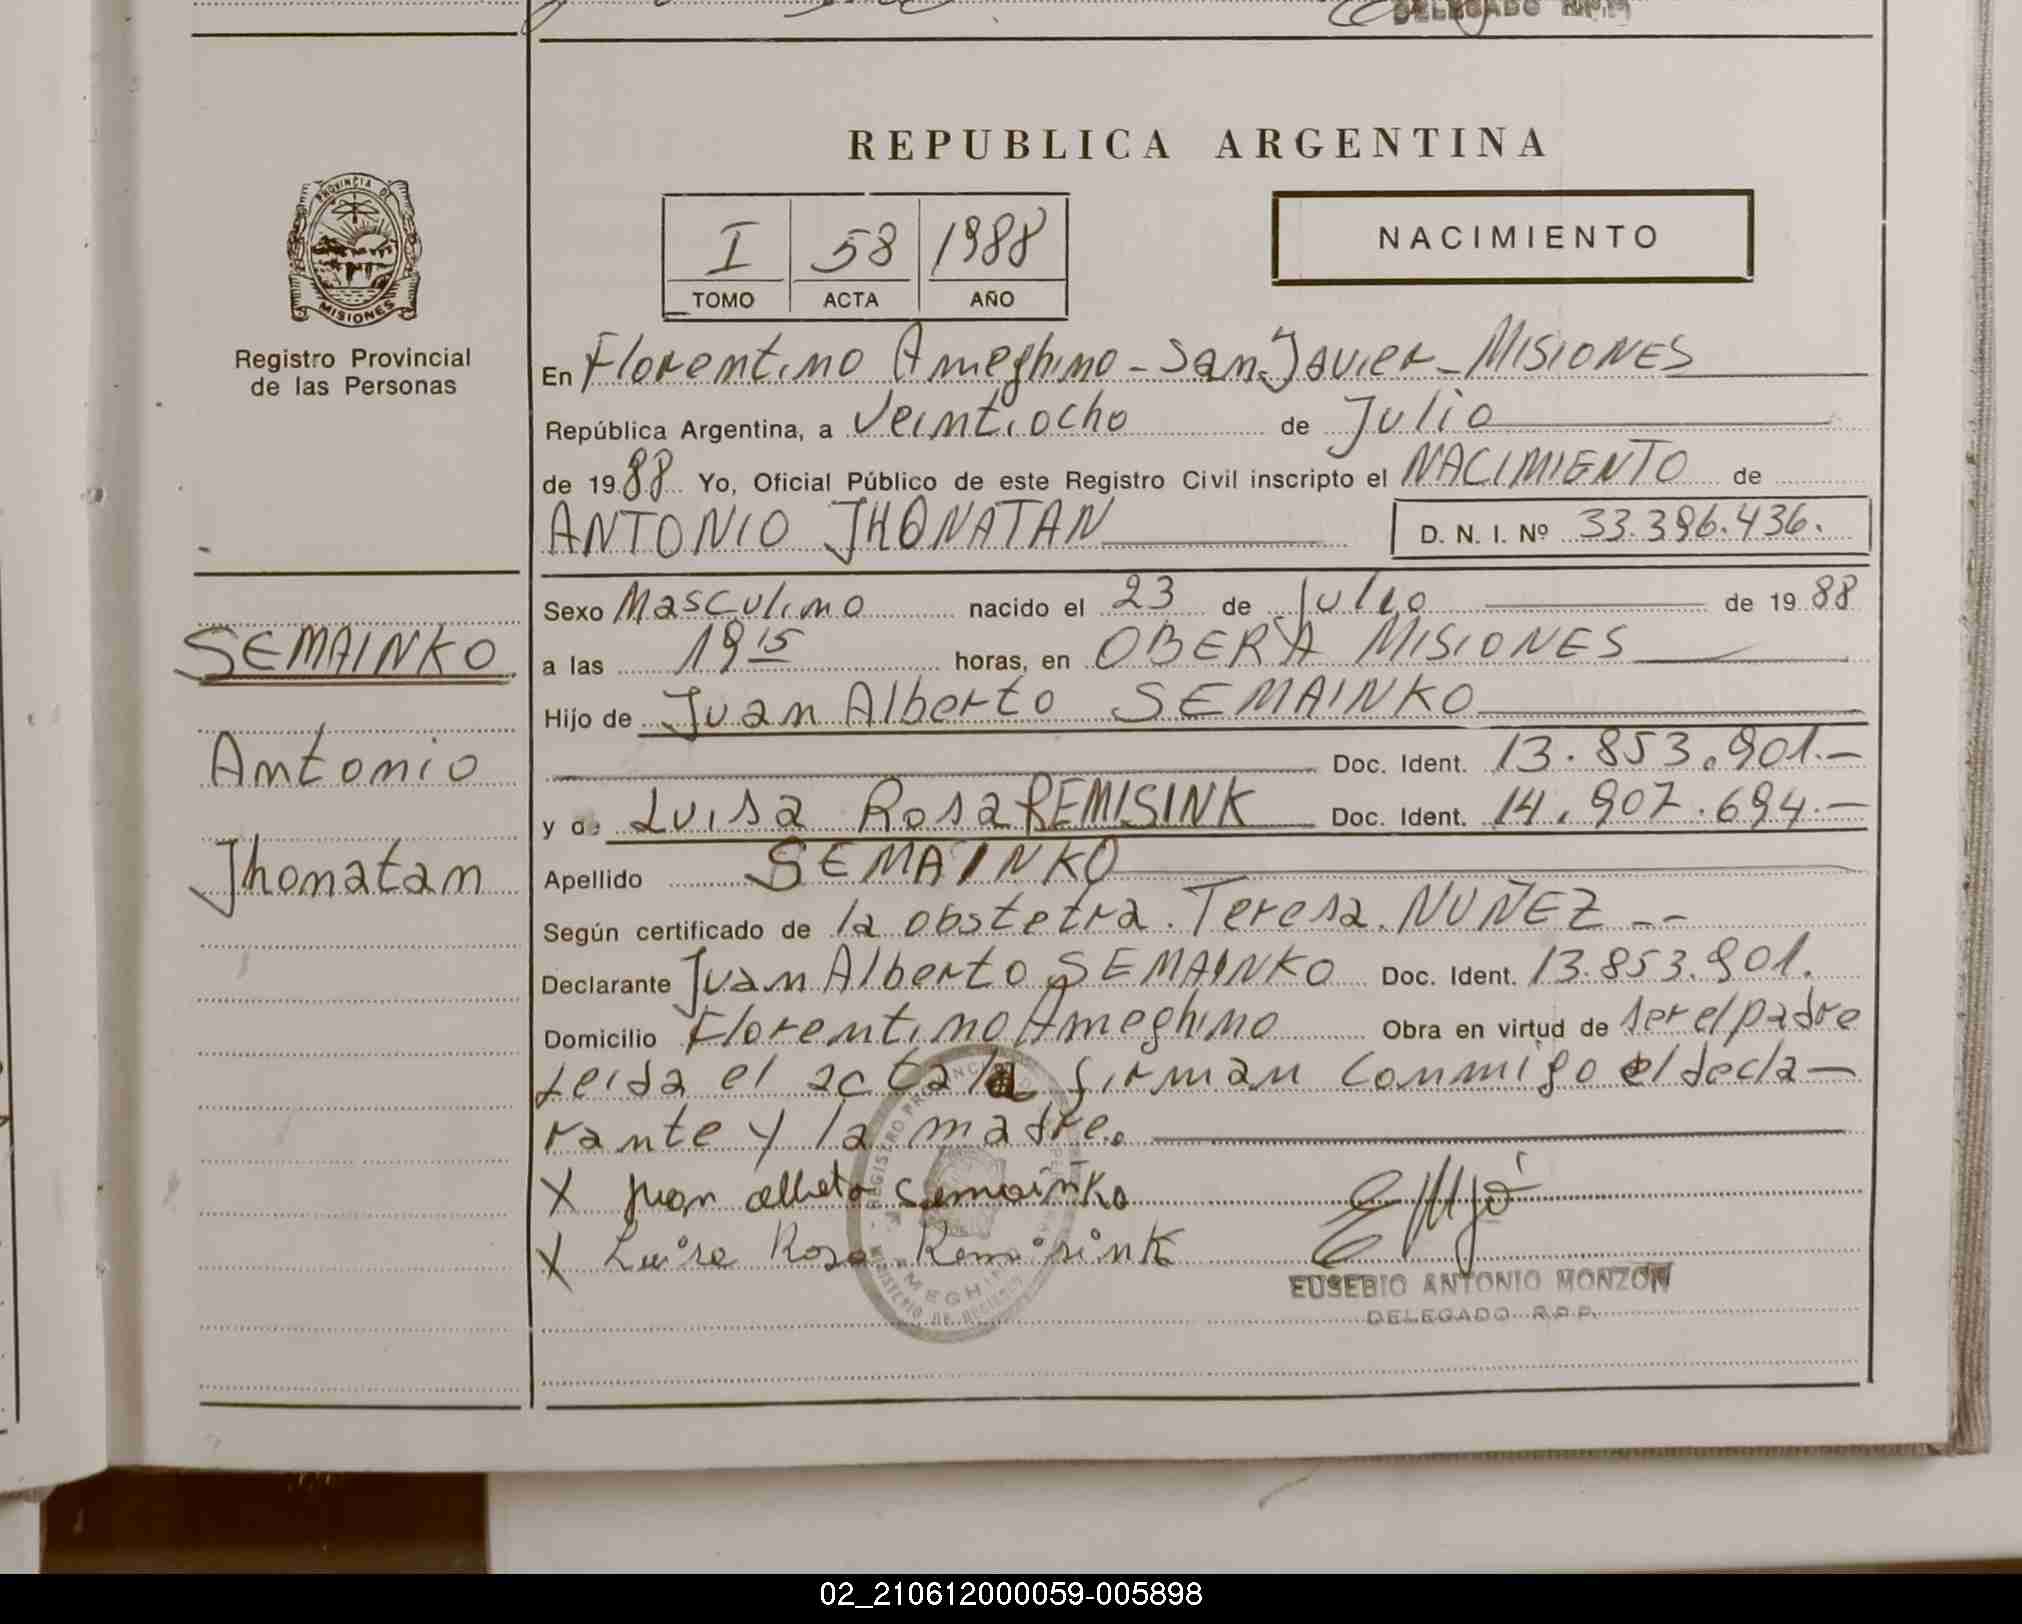 DELEGADO R.P.P.
REPUBLICA ARGENTINA
PROVINCIA DE
MISIONES
Registro Provincial
de las Personas
I 58 1988
TOMO ACTA AÑO
NACIMIENTO
En Florentino Ameghino - San Javier - MISIONES
República Argentina, a Veintiocho de Julio
de 1988 Yo, Oficial Público de este Registro Civil inscripto el NACIMIENTO de
ANTONIO JHONATAN D. N. I. Nº 33.396.436.
Sexo Masculino nacido el 23 de Julio de 1988
SEMAINKO
a las 19 15 horas, en OBERA MISIONES
Hijo de Juan Alberto SEMAINKO
Antonio
Doc. Ident. 13.853.901.-
y de Luisa Rosa REMISINK Doc. Ident. 14.907.694.-
Jhonatan
Apellido SEMAINKO
Según certificado de la obstetra. Teresa. NUÑEZ --
Declarante Juan Alberto SEMAINKO Doc. Ident. 13.853.901.
Domicilio Florentino Ameghino Obra en virtud de ser el padre
Leida el acta la firman conmigo el decla-
rante y la madre.
X Juan alberto Semainko
X Luisa Rosa Remisink
REGISTRO PROVINCIAL DE
AMEGHINO
MINISTERIO DE
EUSEBIO ANTONIO MONZON
DELEGADO R.P.P.
02_210612000059-005898